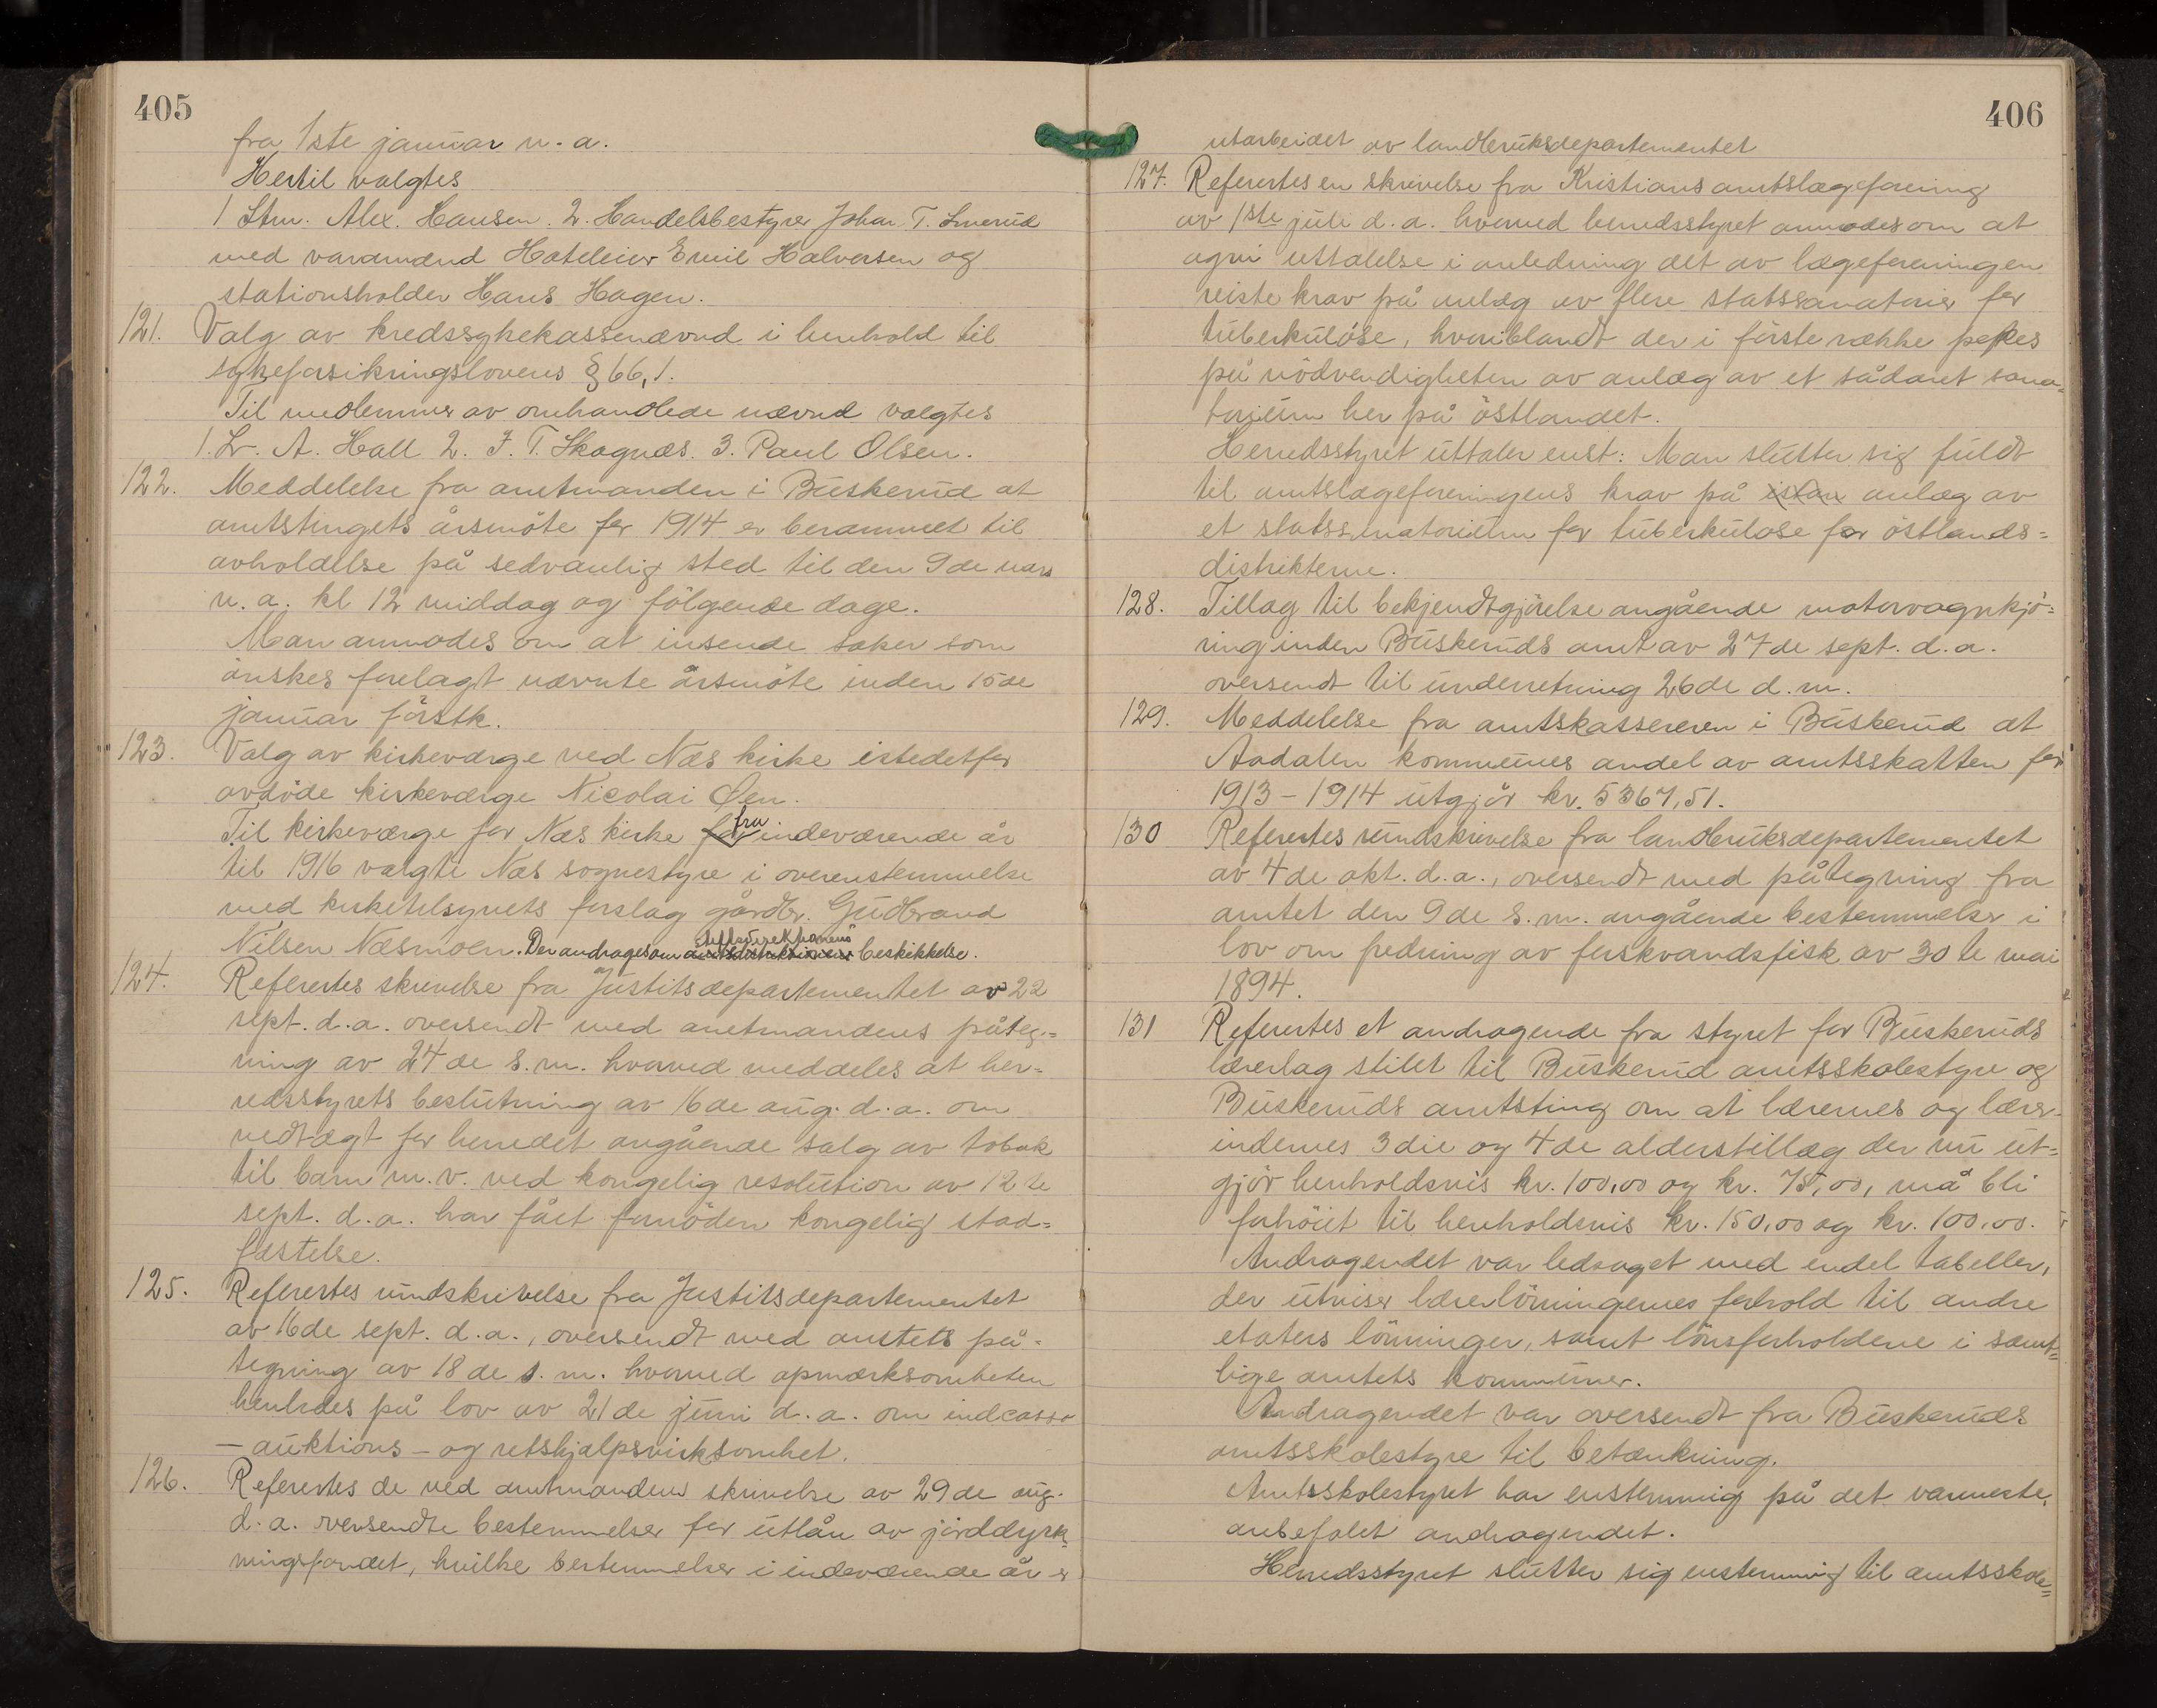 405
fra 1ste januar n. a.
Hertil valgtes
1 Lhm. Alex. Hansen. 2. Handelsbestyrer Johan T. Smerud
med varamænd Hoteleier Emil Halvorsen og
stationsholder Hans Hagen.
121. Valg av kredssykekassenævnd i henhold til
sykeforsikringslovens § 66,1.
Til medlemmer av omhandlede nævnd valgtes
1. Lr. A. Hall 2. J. T. Skagnæs. 3. Paul Olsen.
122. Meddelelse fra amtmanden i Buskerud at
amtstingets årsmöte for 1914 er berammet til
avholdelse på sedvanlig sted til den 9de mars
n. a. kl 12 middag og fölgende dage.
Man anmodes om at insende saker som
önskes forelagt nævnte årsmöte inden 15de
januar förstk.
123. Valg av kirkeværge ved Næs kirke istedetfor
avdöde kirkeværge Nicolai Øen.
Til kirkeværge for Næs kirke for fra indeværende år
til 1916 valgte Næs sognestyre i overenstemmelse
med kirketilsynets forslag gårdbr. Gudbrand
Nilsen Næsmoen. Der andrages om stiftsdirektionens beskikkelse.
124. Referertes skrivelse fra Justitsdepartementet av 22
sept. d. a. oversendt med amtmandens påteg-
ning av 24de s. m. hvorved meddeles at her-
redsstyrets beslutning av 16de aug. d. a. om
vedtægt for herredet angående salg av tobak
til barn m. v. ved kongelig resolution av 12te
sept. d. a. har fået fornöden kongelig stad=
fæstelse.
125. Referertes rundskrivelse fra Justitsdepartementet
av 16de sept. d. a., oversendt med amtets på-
tegning av 18de s. m. hvorved opmerksomheten
henledes på lov av 21de juni d. a. om indcasso
- auktions - og retshjælpsvirksomhet.
126. Referertes de ved amtmandens skrivelse av 29de aug.
d. a. oversendte bestemmelser for utlån av jorddyrk-
ningsfondet, hvilke bestemmelser i indeværende år er
406
utarbeidet av landbruksdepartementet
127. Referertes en skrivelse fra Kristians amtslægeforening
av 1ste juli d. a. hvorved herredsstyret anmodes om at
agvi uttalelse i anledning det av lægeforeningen
reiste krav på anlæg av flere statssanatorier for
tuberkulöse, hvoriblandt der i förste række pekes
på nödvendigheten av anlæg av et sådant sana-
torium her på östlandet.
Herredsstyret uttaler enst: Man slutter sig fuldt
til amtslægeforeningens krav på anlæg av
et statssanatorium for tuberkulose for östlands=
distrikterne.
128. Tillæg til bekjendtgjörelse angående motorvognkjö=
ring inden Buskeruds amt av 27de sept. d. a.
oversendt til underretning 26de d. m.
129. Meddelelse fra amtskassereren i Buskerud at
Aadalen kommunes andel av amtsskatten for
1913 - 1914 utgjör kr. 5367,51.
130 Referertes rundskrivelse fra landbruksdepartementet
av 4de okt. d. a., oversendt med påtegning fra
amtet den 9de s. m. angående bestemmelser i
lov om fredning av ferskvandsfisk av 30te mai
1894.
131 Referertes et andragende fra styret for Buskeruds
lærerlag stilet til Buskerud amtsskolestyre og
Buskeruds amtsting om at lærernes og lærer-
indernes 3die og 4de alderstillæg der nu ut=
gjör henholdsvis kr. 100,00 og kr. 75,00, må bli
forhöiet til henholdsvis kr. 150,00 og kr. 100,00.
Andragendet var ledsaget med endel tabeller,
der utviser lærerlönningenes forhold til andre
etaters lönninger, samt lönsforholdene i samt=
lige amtets kommuner.
Andragendet var oversendt fra Buskeruds
amtsskolestyre til betænkning.
Amtsskolestyret har enstemmig på det varmeste
anbefalet andragendet.
Herredsstyret slutter sig enstemmig til amtsskole=